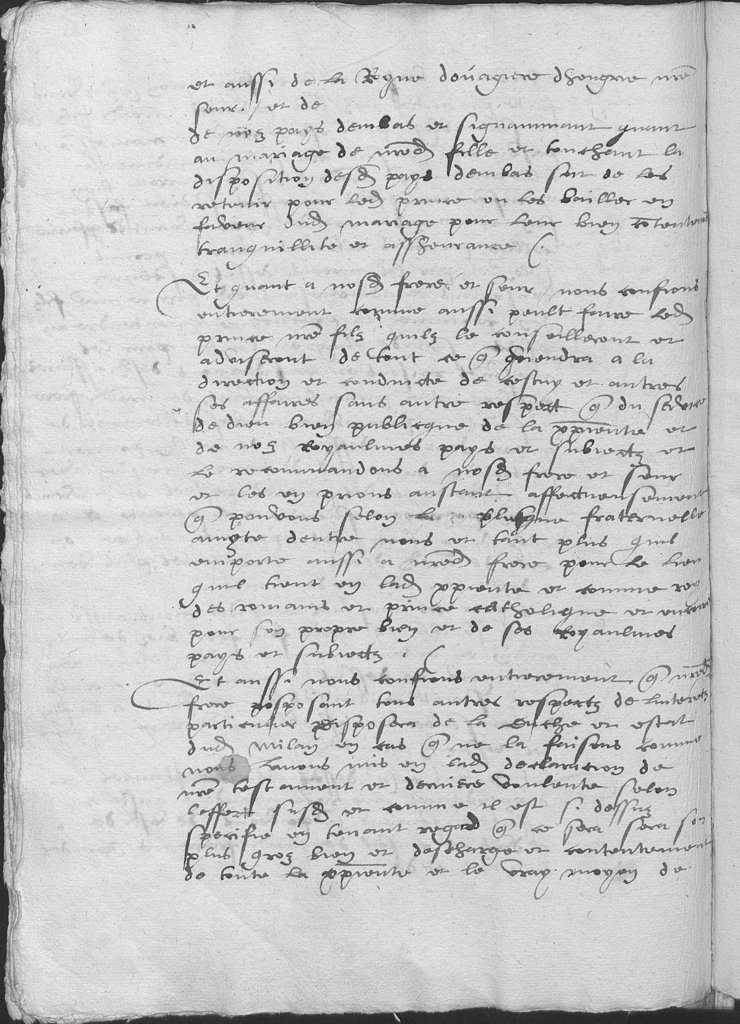 et aussi de la Royne douagiere dhongrie nre
seur. et de
de noz pays dembas et signammant quant
au mariage de nred fille et touchant la
disposition desd pays dembas soit de les
retenir pour led prince ou les bailler en
faveur dud mariage pour leur bien contentement
tranquillite et assheurance /.
Et quant a nosd frere et seur nous confions
entierement comme aussi peult faire led
prince nre filz quilz le conseilleront et
adviseront de tout ce q conviendra a la
direction et conduicte de cestuy et autres
ses affaires sans autre respect q du service
de dieu bien publicque de la xpiente et
de noz Royaulmes pays et subiectz et
le recommandons a nosd frere et seur
et les en prions autant affectueusement
q pouvons selon la fraternelle
amytie dentre nous et tant plus quil
emporte aussi a nred frere pour le lieu
quil tient en lad xpiente et comme roy
des romains et prince catholique et encores
pour son propre bien et de ses Royaulmes
pays et subiectz . /
Et aussi nous confions entierement q nred
frere posposant tous autres respectz de linterest
particulier disposera de la duche et estat
dud Milan en cas q ne la faisons comme
nous lavons mis en lad declaracion de
nre testament et derniere voulente selon
leffect susd et comme il est si dessuz
specifie en tenant regard q ce sera son
plus groz bien et descharge et contentement
de toute la xpiente et le vray moyen de